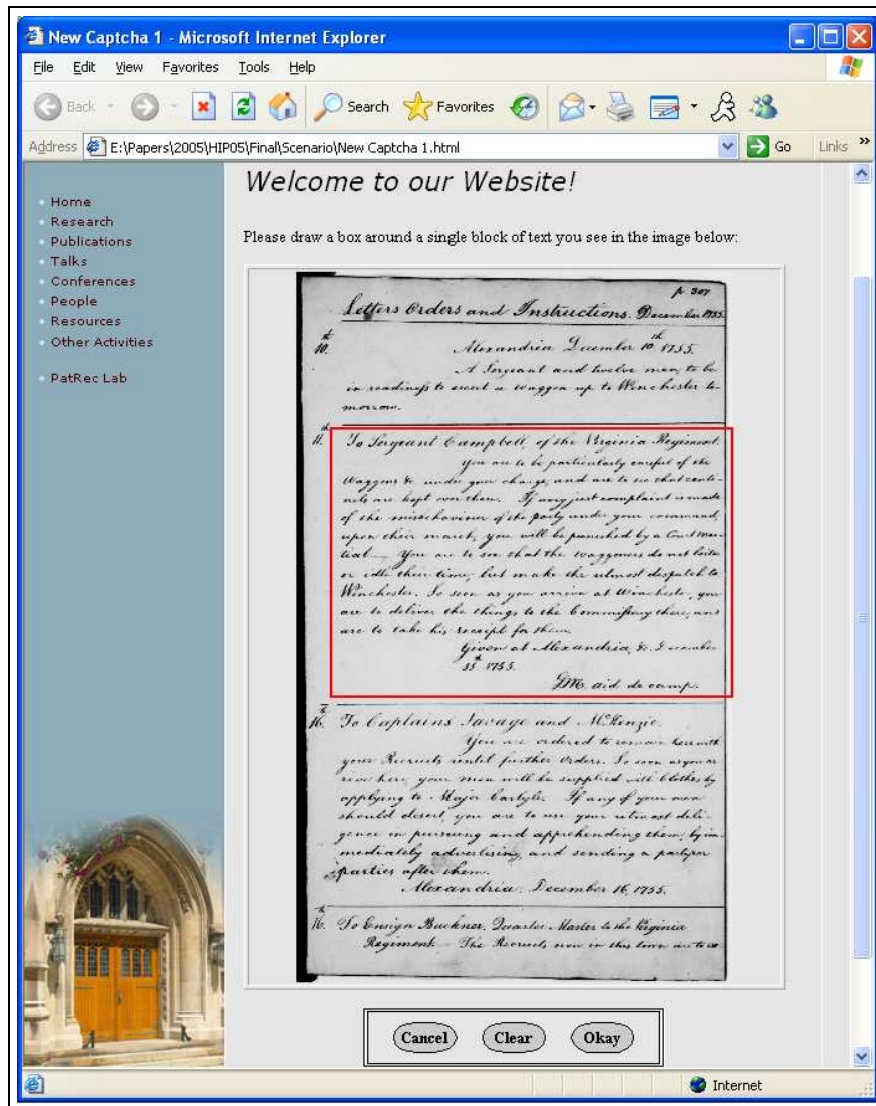 New Captcha 1 - Microsoft Internet Explorer
File Edit View Favorites Tools Help
Back Search Favorites
Address E:\Papers\2005\HIP05\Final\Scenario\New Captcha 1.html Go Links »
Home
Research
Publications
Talks
Conferences
People
Resources
Other Activities
PatRec Lab
Welcome to our Website!
Please draw a box around a single block of text you see in the image below:
p. 307
Letters Orders and Instructions. December 1755.
10.th Alexandria December 10.th 1755.
A Sergeant and twelve men, to be
in readiness to escort a waggon up to Winchester to-
morrow.
11.th To Sergeant Campbell, of the Virginia Regiment.
You are to be particularly careful of the
Waggons &c under your charge, and are to see that centi-
nels are kept over them. If any just complaint is made
of the misbehaviour of the party under your command,
upon their march, you will be punished by a Court Mar-
tial — You are to see that the waggoners do not loiter
or idle their time; but make the utmost despatch to
Winchester. So soon as you arrive at Winchester, you
are to deliver the things to the Commissary there, and
are to take his receipt for them.
Given at Alexandria, &c. December
1755.
aid de camp.
16.th To Captains Savage and McKenzie.
You are ordered to remain here with
your Recruits until further Orders. So soon as you ar
rive here, your men will be supplied with Clothes by
applying to Major Carlyle. If any of your men
should desert, you are to use your utmost dili-
gence in pursuing and apprehending them, by im-
mediately advertising, and sending a party or
parties after them.
Alexandria. December 16, 1755.
16.th To Ensign Buckner. Quarter Master to the Virginia
Regiment — The Recruits now in this town are to
Cancel Clear Okay
Internet